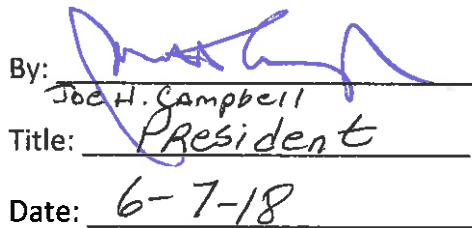 By:
Joe H. Campbell
Title: PResident
Date: 6-7-18